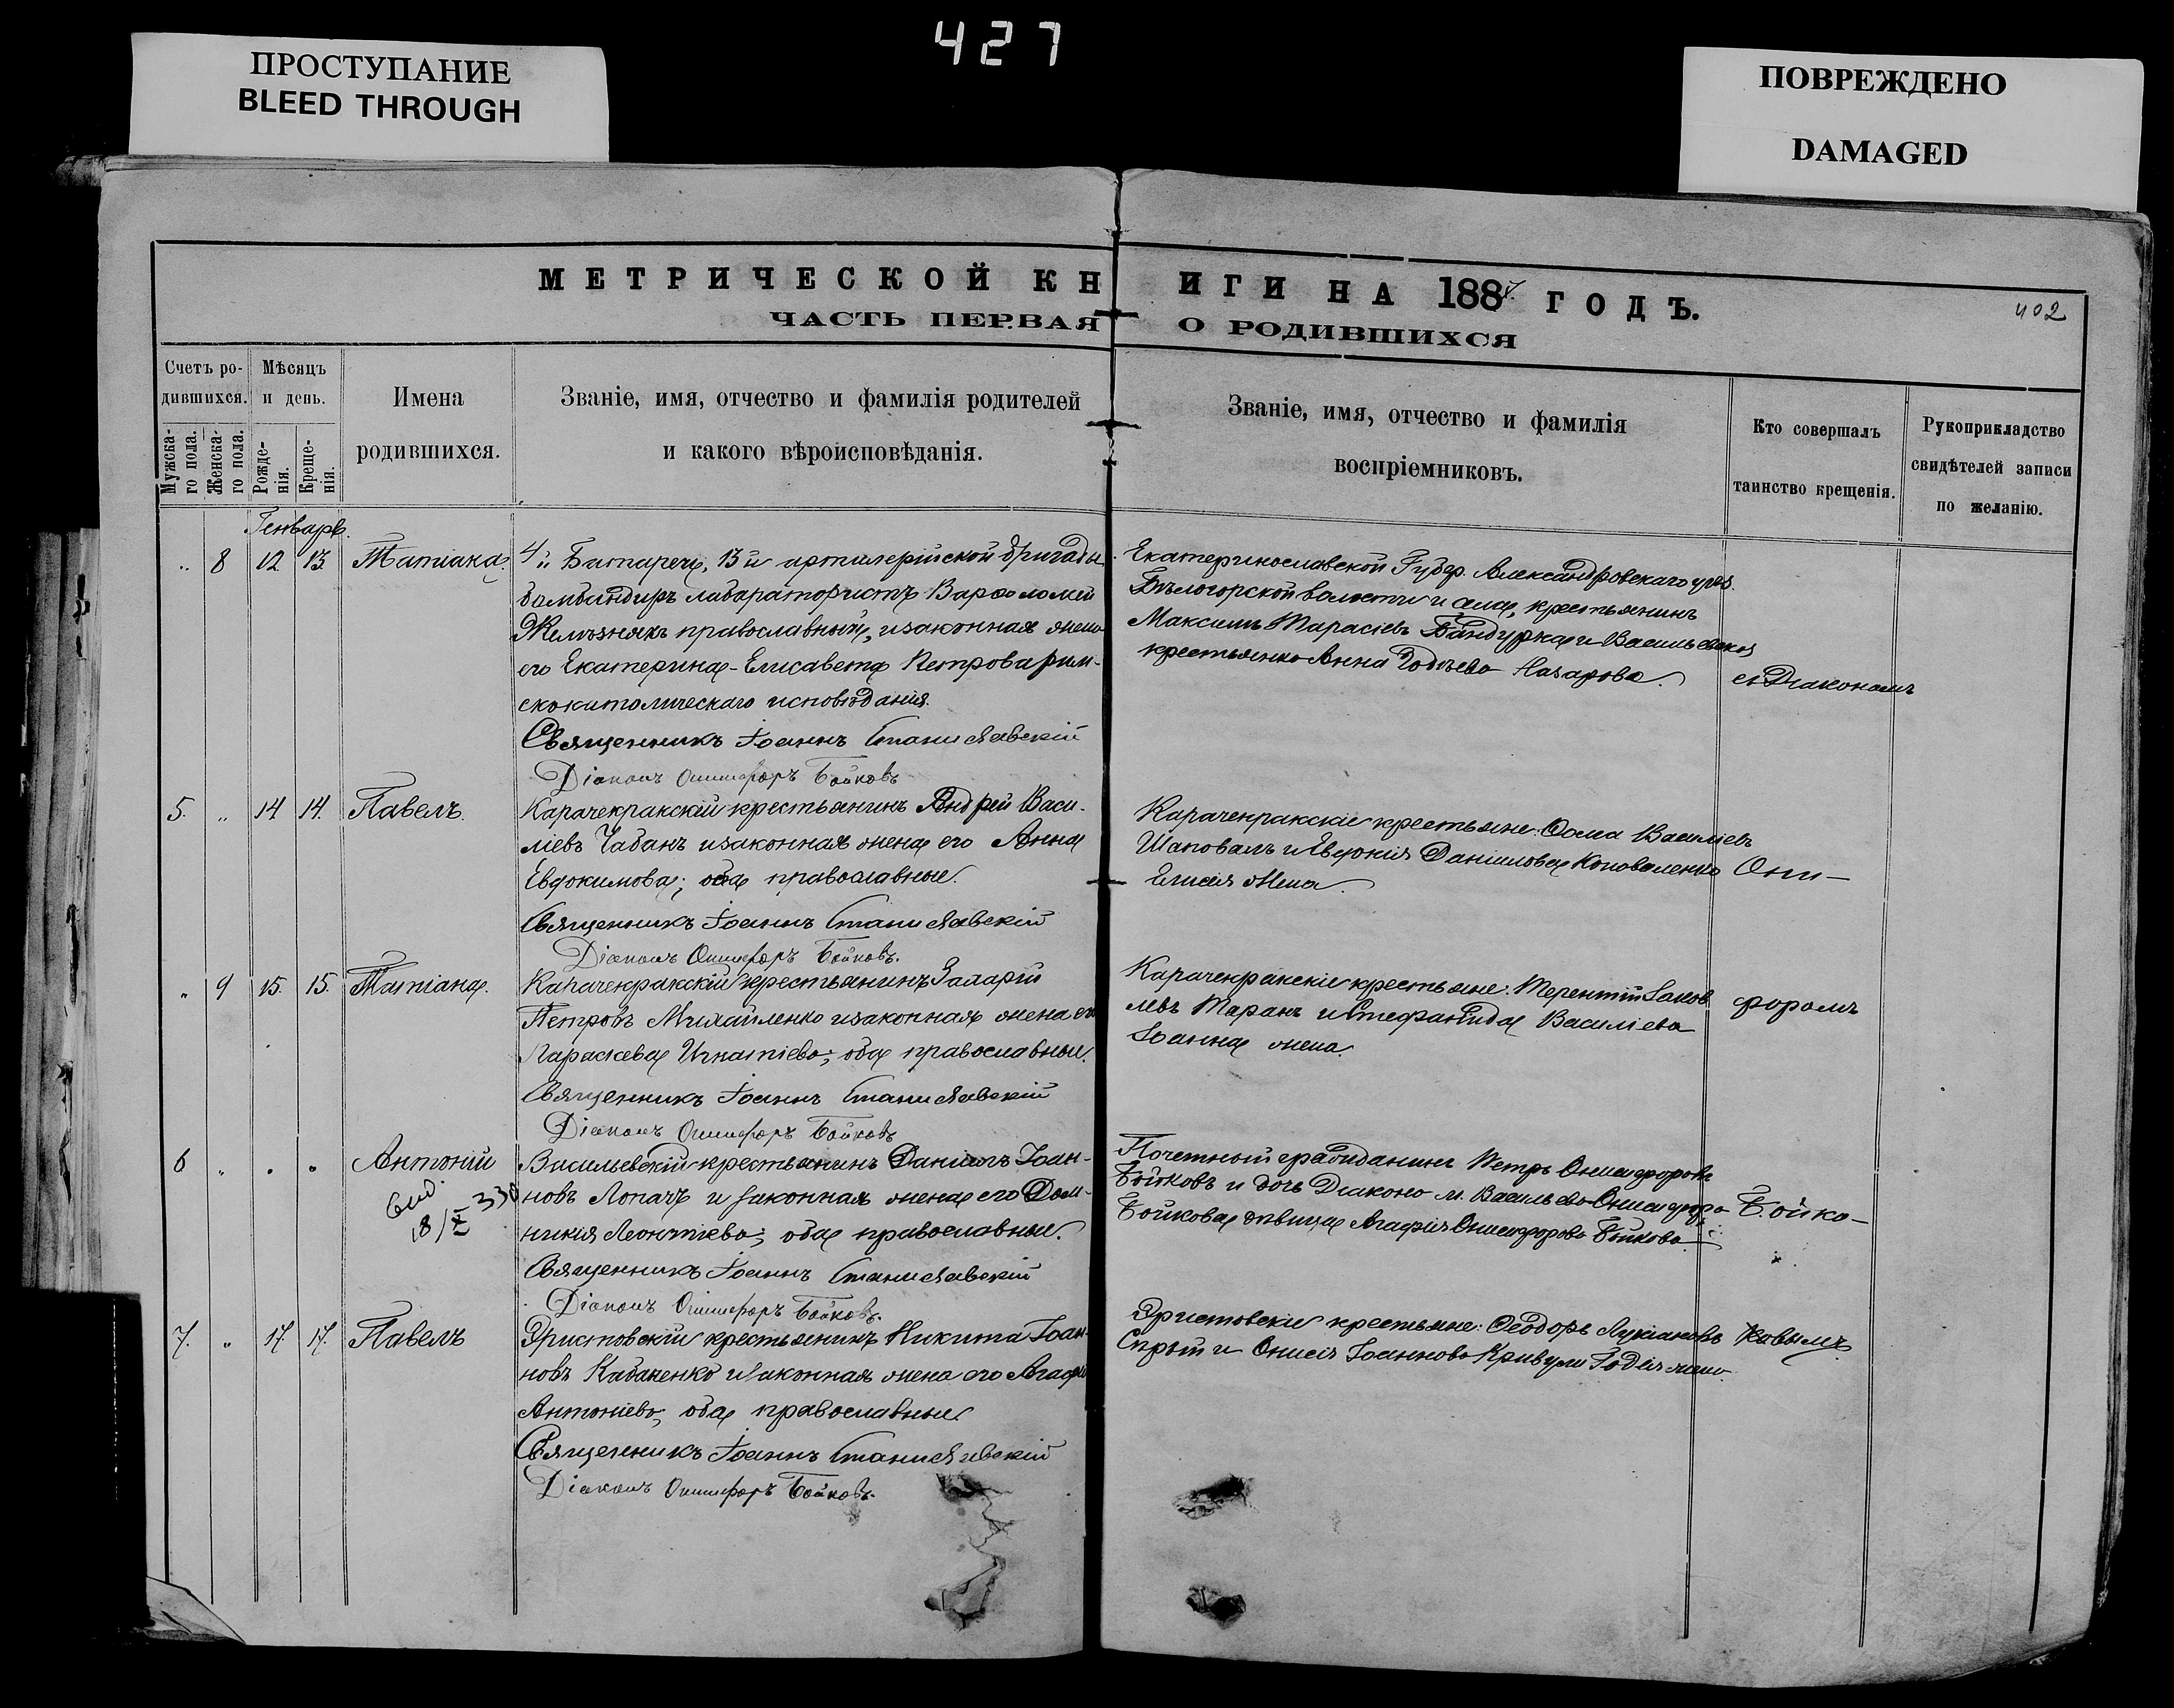 427
ПРОСТУПАНІЕ
BLEED THROUGH
ПОВРЕЖДЕНО
DAMAGED
МЕТРИЧЕСКОЙ КНИГИ НА 1887 ГОДЪ.
402
ЧАСТЬ ПЕРВАЯ О РОДИВШИХСЯ
Счетъ ро-
дившихся.
Мужска-
го пола.
Женска-
го пола.
Мѣсяцъ
и день.
Рожде-
нія.
Креще-
нія.
Имена
родившихся.
Званіе, имя, отчество и фамилія родителей
и какого вѣроисповѣданія.
Званіе, имя, отчество и фамилія
воспріемниковъ.
Кто совершалъ
таинство крещенія.
Рукоприкладство
свидѣтелей записи
по желанію.
Генварь.
„ 8 12 13 Татіана
4й Батареи, 13й артилерійской бригады
бомбандиръ лабаратористъ Варѳоломей
Желѣзнякъ православный, и законная жена
его Екатерина-Елисавета Петрова рим-
скокатолическаго исповѣданія.
Священникъ Іоаннъ Станиславскій
Діаконъ Онисифоръ Бойковъ
Екатеринославской Губер. Александровскаго уѣз.
Бѣлогорской волости и села, крестьянинъ
Максимъ Тарасіевъ Бандурка и Васильевская
крестьянка Анна Назарова.
съ Діакономъ
5. „ 14 14. Павелъ.
Карачекракскій крестьянинъ Андрей Васи-
ліевъ Чабанъ и законная жена его Анна
Евдокимова; оба православные.
Священникъ Іоаннъ Станиславскій
Діаконъ Онисифоръ Бойковъ.
Карачекракскіе крестьяне: Ѳома Василіевъ
Шаповалъ и Евдокія Даніилова Коноваленко
Елисея жена.
Они-
„ 9 15. 15. Татіана.
Карачекракскій крестьянинъ Захарій
Петровъ Михайленко и законная жена его
Параскева Игнатіева; оба православные.
Священникъ Іоаннъ Станиславскій
Діаконъ Онисифоръ Бойковъ
Карачекракскіе крестьяне: Терентій Іаков
левъ Таранъ и Стефанида Василіева
Іоанна жена.
форомъ
6 „ „ „ Антоній
Васильевскій крестьянинъ Даніилъ Іоан-
новъ Лопачъ и законная жена его Дом-
никія Леонтіева; оба православные.
Священникъ Іоаннъ Станиславскій
Діаконъ Онисифоръ Бойковъ.
18/X 330
Почетный гражданинъ Петръ Онисифоровъ
Бойковъ и дочь Діакона м. Васильевки Онисифора
Бойкова дѣвица Агафія Онисифорова Бойкова.
Бойко-
7. „ 17. 17. Павелъ
Эристовскій крестьянинъ Никита Іоан-
новъ Кабаненко и законная жена его Агафія
Антоніева; оба православные.
Священникъ Іоаннъ Станиславскій
Діаконъ Онисифоръ Бойковъ.
Эристовскіе крестьяне: Ѳеодоръ Лукіановъ
Скрыпъ и Онисія Іоаннова Кривули Іова жена.
вымъ